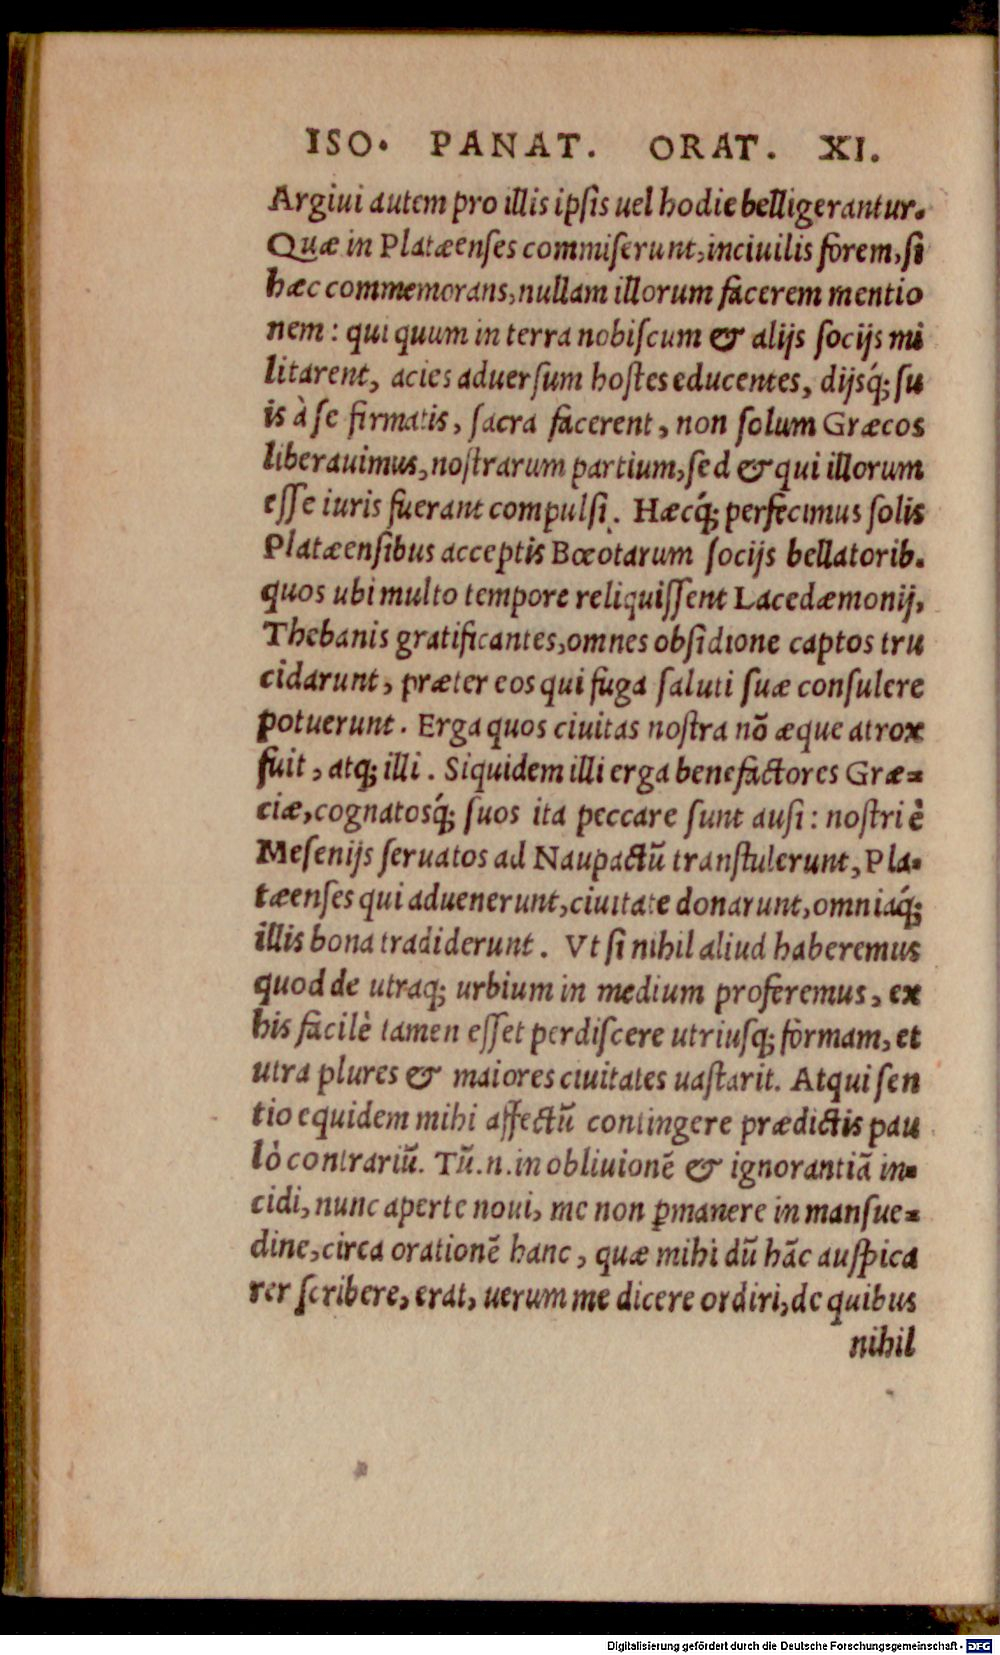 ISO. PANAT. ORAT. XI.
Argiui autem pro illis ipſis uel hodie belligerantur.
Quæ in Platæenſes commiſerunt, inciuilis forem, ſi
hæc commemorans, nullam illorum facerem mentio
nem: qui quum in terra nobiſcum & alijs ſocijs mi
litarent, acies aduerſum hoſtes educentes, dijsq́; ſu
is à ſe firmatis, ſacra facerent, non ſolum Græcos
liberauimus, noſtrarum partium, ſed & qui illorum
eſſe iuris fuerant compulſi. Hæcq́; perfecimus ſolis
Platæenſibus acceptis Bœotarum ſocijs bellatorib.
quos ubi multo tempore reliquiſſent Lacedæmonij,
Thebanis gratificantes, omnes obſidione captos tru
cidarunt, præter eos qui fuga ſaluti ſuæ conſulere
potuerunt. Erga quos ciuitas noſtra nõ æque atrox
fuit, atq; illi. Siquidem illi erga benefactores Græ-
ciæ, cognatosq́; ſuos ita peccare ſunt auſi: noſtri è
Meſenijs ſeruatos ad Naupactũ tranſtulerunt, Pla-
tæenſes qui aduenerunt, ciuitate donarunt, omniaq́;
illis bona tradiderunt. Vt ſi nihil aliud haberemus
quod de utraq; urbium in medium proferemus, ex
his facilè tamen eſſet perdiſcere utriuſq; formam, et
utra plures & maiores ciuitates uaſtarit. Atqui ſen
tio equidem mihi affectũ contingere prædictis pau
lò contrariũ. Tũ.n. in obliuionẽ & ignorantiã in-
cidi, nunc aperte noui, me non ꝑmanere in manſue-
dine, circa orationẽ hanc, quæ mihi dũ hãc auſpica
rer ſcribere, erat, uerum me dicere ordiri, de quibus
nihil
Digitalisierung gefördert durch die Deutsche Forschungsgemeinschaft - DFG